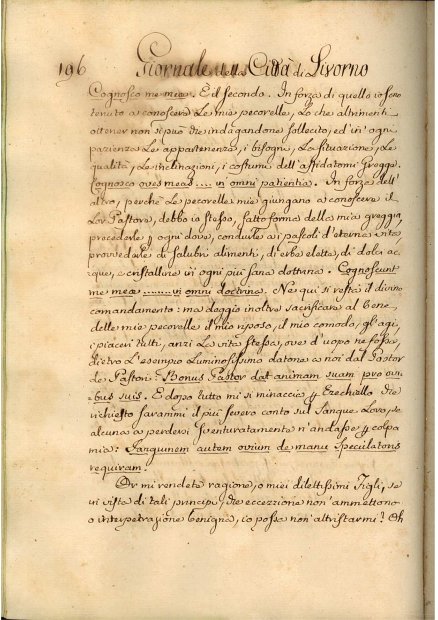 196 Giornale della Città di Livorno
Cognosco me meæ. E il secondo. In forza di quello io sono
tenuto a conoscere le mie pecorelle, lo che altrimenti
ottener non si può che indagandone sollecito, ed in ogni
pazienza le appartenenze, i bisogni, la situazione, le
qualità, le inclinazioni, i costumi dell'affidatomi Gregge.
Cognosco oves meas.... in omni patientia. In forza dell'
altro, perchè le pecorelle mie giungano a conoscere il
lor Pastore, debbo io stesso, fatto forma della mia greggia,
precederle p ogni dove, condurle ai pascoli d'eterna vita,
provvederle di salubri alimenti, di erbe elette, di dolci ac
que, e cristalline in ogni più sana dottrina. Cognoscunt
me meæ ......... in omni doctrina. Ne qui si resta il divino
comandamento: ma deggio inoltre sacrificare al bene
delle mie pecorelle il mio riposo, il mio comodo, gli agi,
i piaceri tutti, anzi la vita stessa, ove d'uopo ne fosse,
dietro l'esempio luminosissimo datone a noi dal Pastor
de Pastori: Bonus Pastor dat animam suam pro ovi-
bus suis. E dopo tutto mi si minaccia p Ezechiello che
richiesto sarammi il più severo conto sul sangue loro, se
alcuna a perdersi sventuratamente n'andasse p colpa
mia: Sanguinem autem ovium de manu speculatoris
requiram.
Or mi rendete ragione, o miei dilettissimi Figli, se
in vista di tali principj, che eccezzione non ammettono
o interpetrazione benigna, io possa non attristarmi? Oh